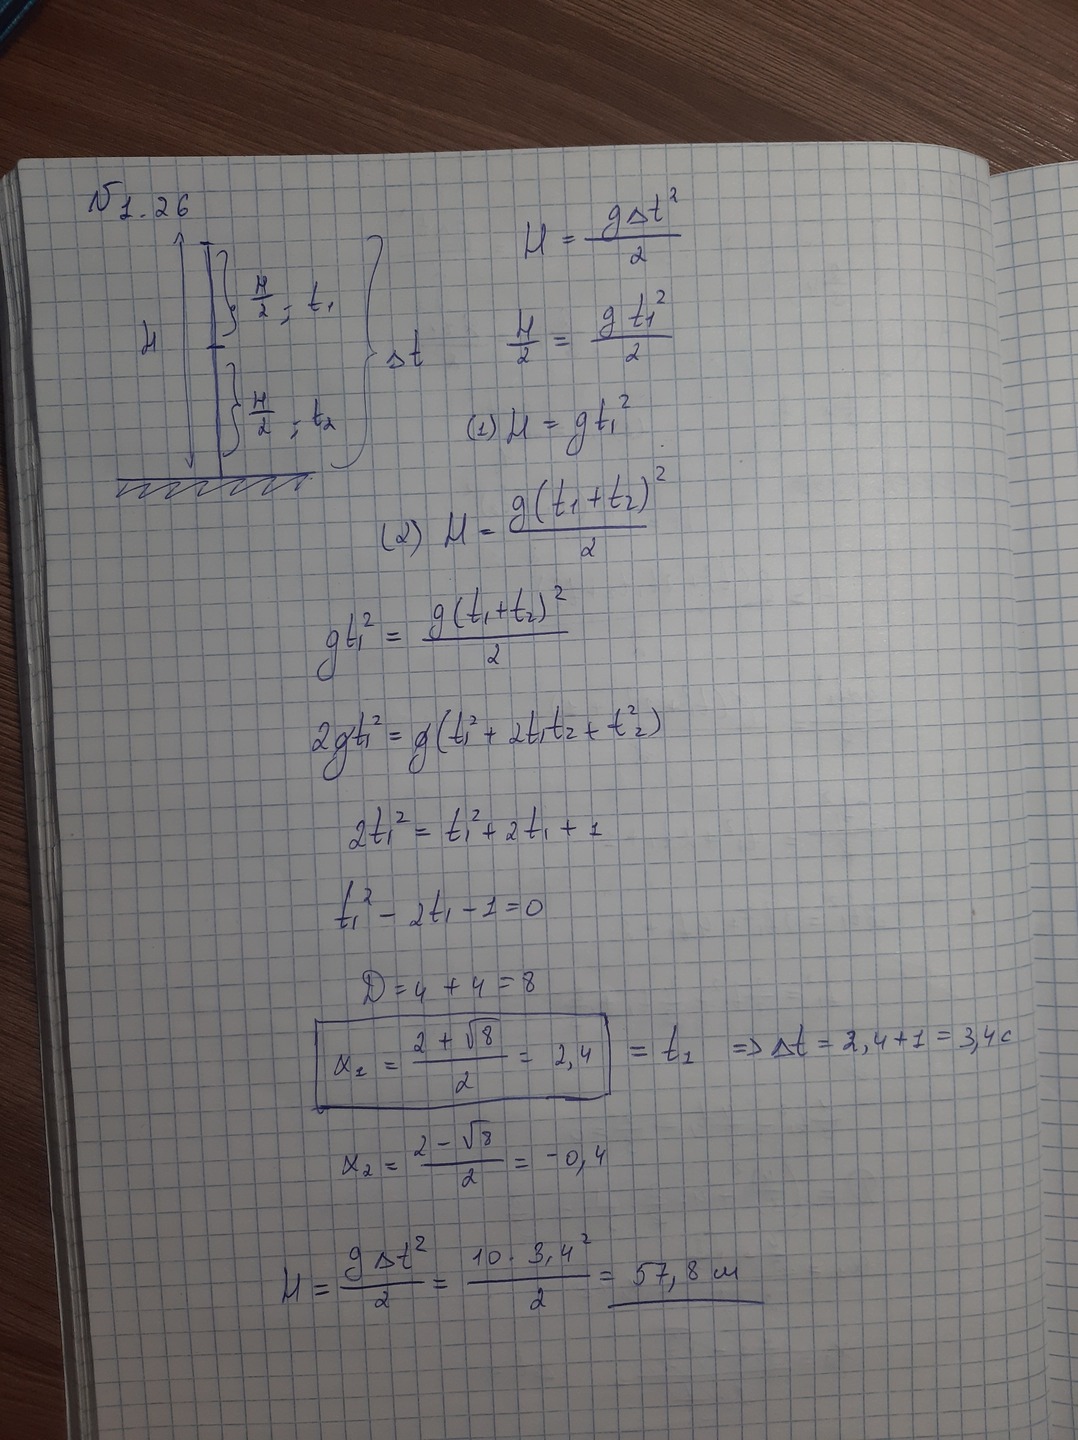 №1.26
H
H/2 ; t₁
H/2 ; t₂
Δt
H = gΔt²/2
H/2 = gt₁²/2
(1) H = gt₁²
(2) H = g(t₁+t₂)²/2
gt₁² = g(t₁+t₂)²/2
2gt₁² = g(t₁² + 2t₁t₂ + t₂²)
2t₁² = t₁² + 2t₁ + 1
t₁² - 2t₁ - 1 = 0
D = 4 + 4 = 8
x₁ = (2 + √8)/2 = 2,4 = t₁ => Δt = 2,4+1 = 3,4 с
x₂ = (2 - √8)/2 = -0,4
H = gΔt²/2 = 10·3,4²/2 = 57,8 м